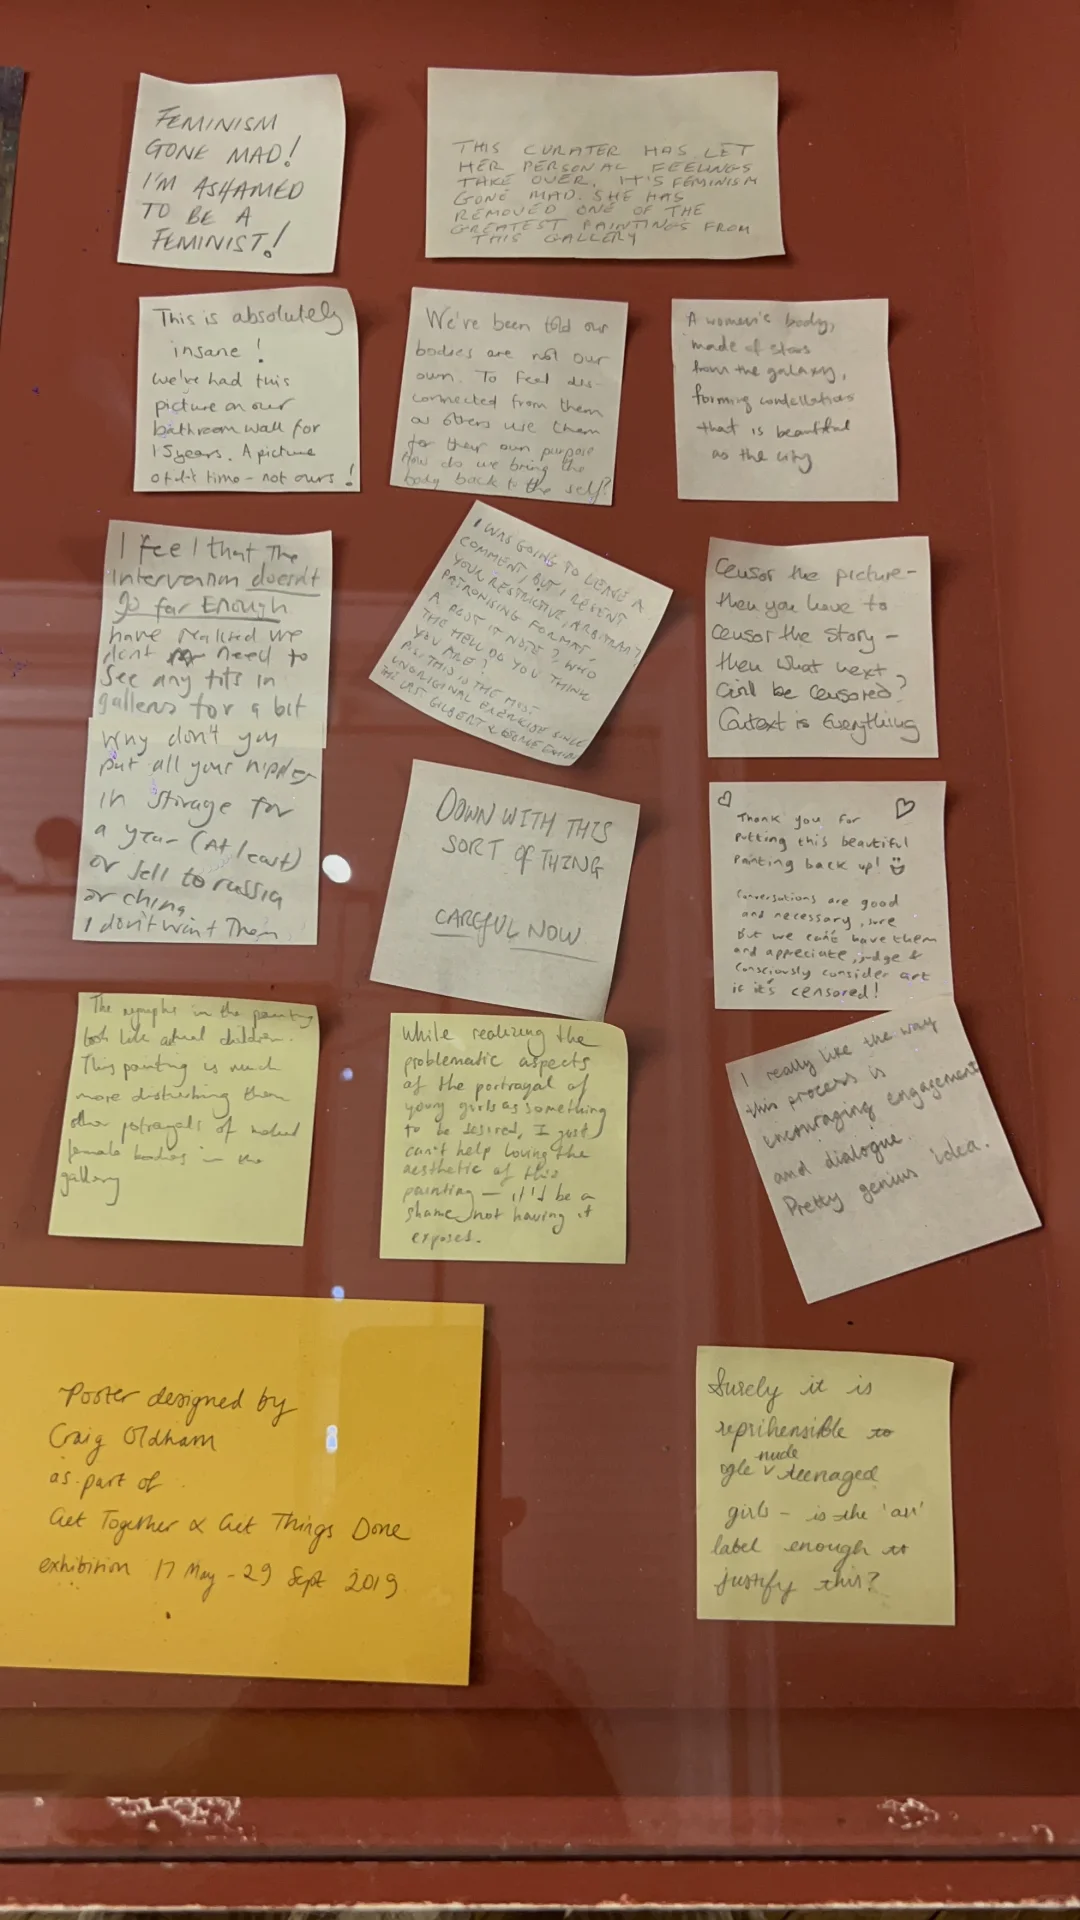 FEMINISM
GONE MAD!
I'M ASHAMED
TO BE A
FEMINIST!
THIS CURATER HAS LET
HER PERSONAL FEELINGS
TAKE OVER. IT'S FEMINISM
GONE MAD. SHE HAS
REMOVED ONE OF THE
GREATEST PAINTINGS FROM
THIS GALLERY
This is absolutely
insane!
we've had this
picture on our
bathroom wall for
15 years. A picture
of it's time - not ours!
We've been told our
bodies are not our
own. To feel dis-
connected from them
as others use them
for their own purpose
How do we bring the
body back to the self?
A women's body,
made of stars
from the galaxy,
forming constellations
that is beautiful
as the city
I feel that The
intervention doesn't
go far Enough
have realised we
dont need to
see any tits in
gallerys for a bit
Why don't you
put all your nipples
in storage for
a year (At least)
or sell to russia
or china
I don't want Them
I WAS GOING TO LEAVE A
COMMENT, BUT I RESENT
YOUR RESTRICTIVE, ARBITRARY
PATRONISING FORMAT.
A POST IT NOTE? WHO
THE HELL DO YOU THINK
YOU ARE?
THIS IS THE MOST
UNORIGINAL EXERCISE SINCE
THE LAST GILBERT & GEORGE
Censor the picture -
then you have to
censor the story -
then what next
will be censored?
Context is Everything
DOWN WITH THIS
SORT OF THING
CAREFUL NOW
Thank you for
putting this beautiful
painting back up!
Conversations are good
and necessary, sure
But we can't have them
and appreciate, judge &
consciously consider art
if it's censored!
The nymphs in the painting
look like actual children.
This painting is much
more disturbing then
other potrayals of naked
female bodies in the
gallery
While realizing the
problematic aspects
of the portrayal of
young girls as something
to be desired, I just
can't help loving the
aesthetic of this
painting - it'd be a
shame not having it
exposed.
I really like the way
this process is
encouraging engagement
and dialogue.
Pretty genius idea.
Poster designed by
Craig Oldham
as part of
Get Together & Get Things Done
exhibition 17 May - 29 Sept 2019
Surely it is
reprihensible to
ogle nude teenaged
girls - is the 'art'
label enough to
justify this?